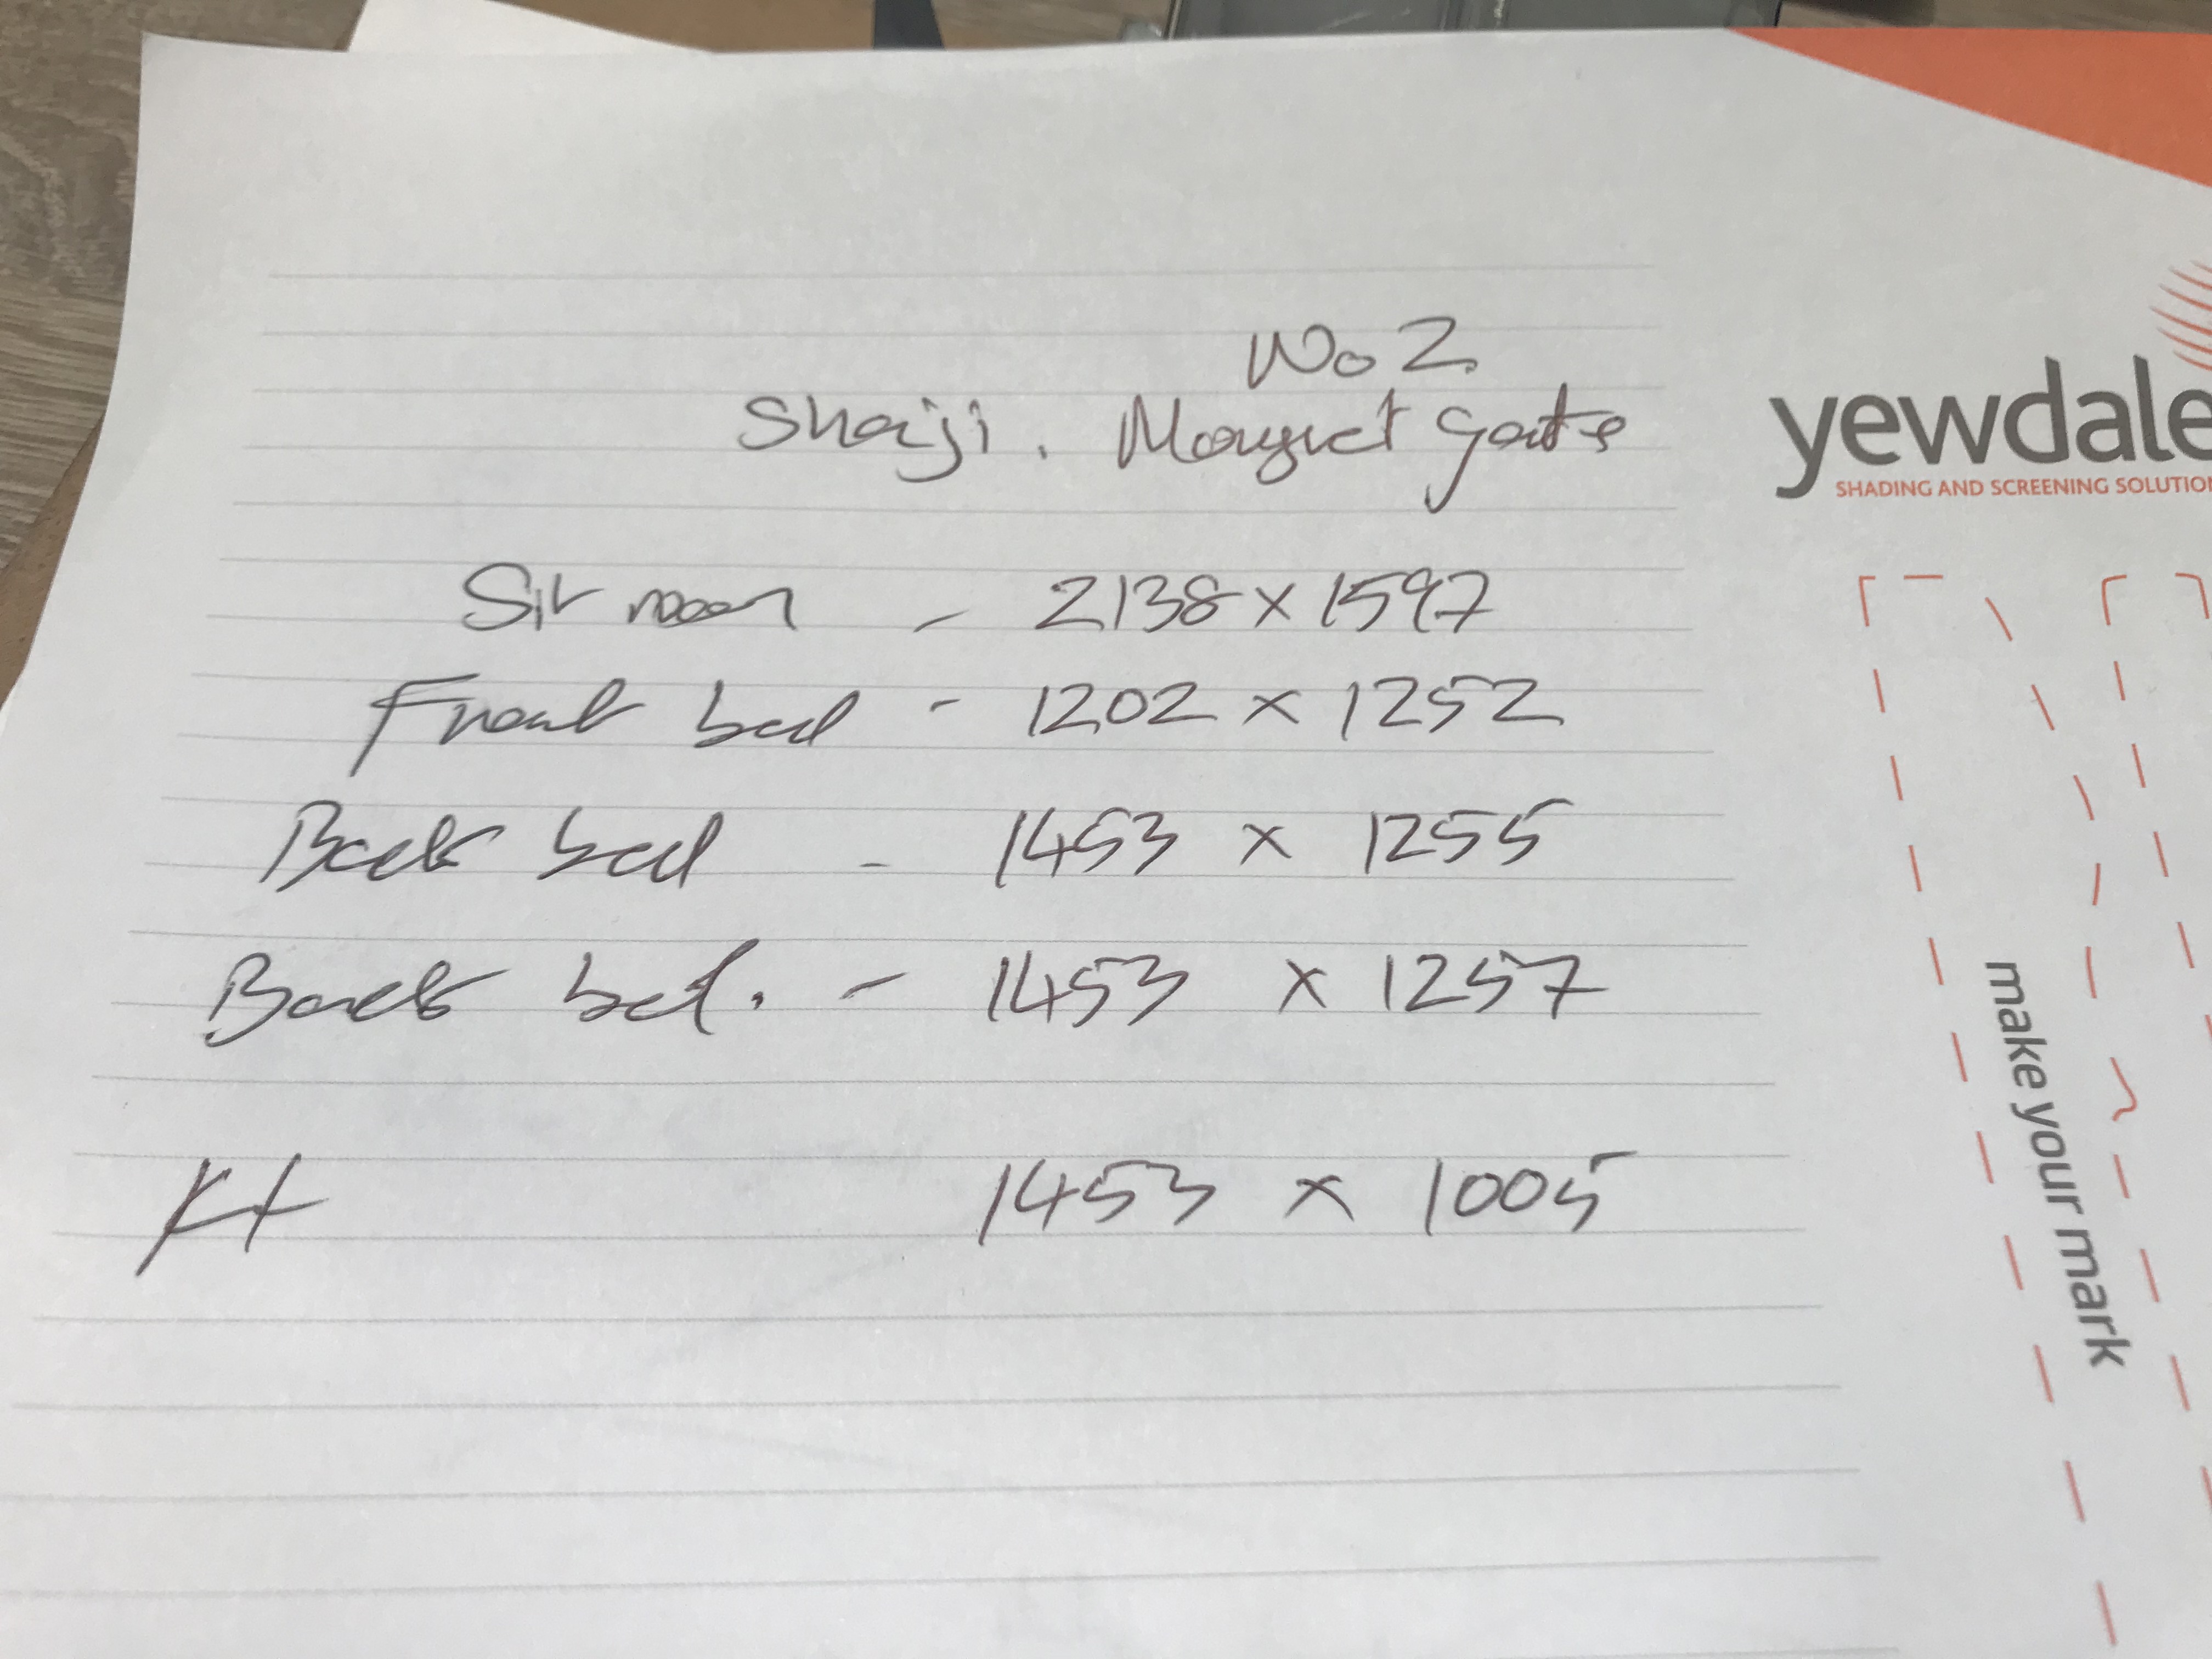 No 2
Shaiji. Magnet gate
yewdale
SHADING AND SCREENING SOLUTION
Sit room - 2138 x 1597
Front bed - 1202 x 1252
Back bed - 1453 x 1255
Back bed. - 1453 x 1257
Kt 1453 x 1005
make your mark